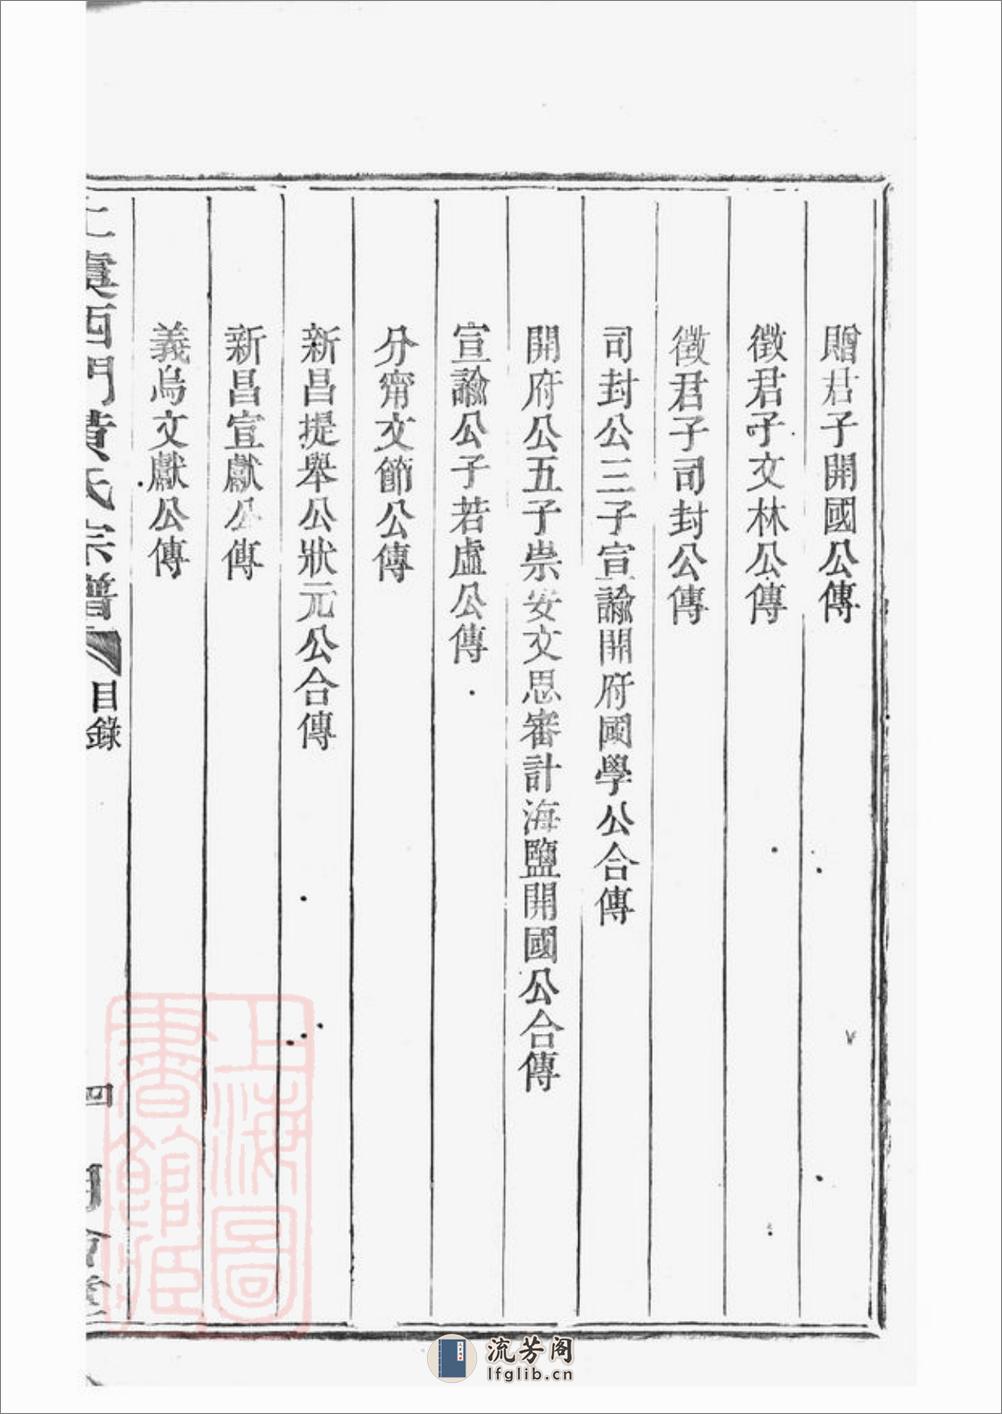 贈君子開國公傳
徵君子文林公傳
徵君子司封公傳
司封公三子宣諭開府國學公合傳
開府公五子崇安文思審計海鹽開國公合傳
宣諭公子若虛公傳
分甯文節公傳
新昌提舉公狀元公合傳
新昌宣獻公傳
義烏文獻公傳
上虞西門黃氏宗譜
目錄
四
上海圖
書館藏
流芳阁
lfglib.cn